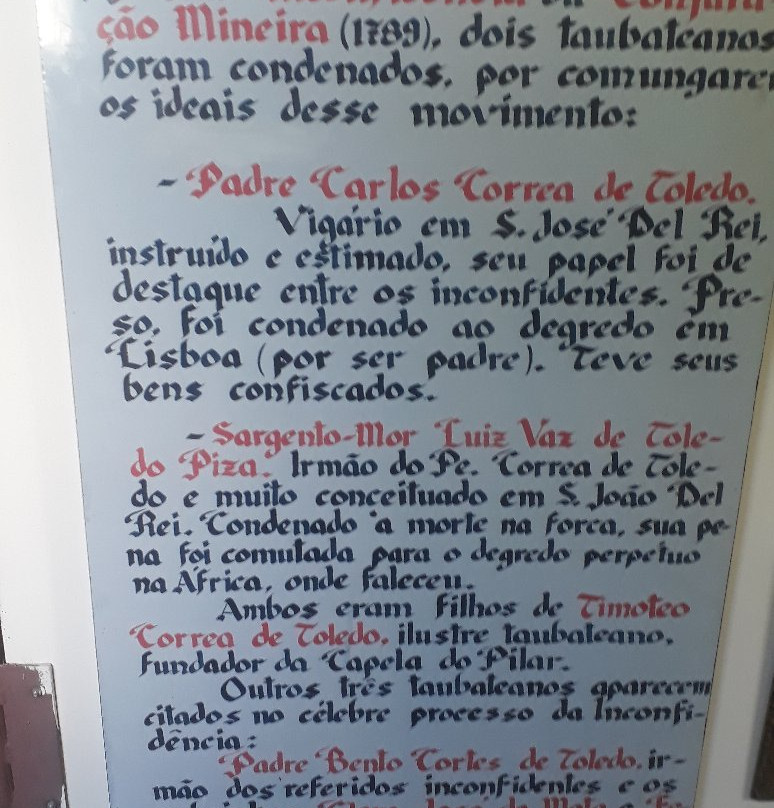 ção Mineira (1789), dois taubateanos
foram condenados, por comungarem
os ideais desse movimento:
- Padre Carlos Correa de Toledo.
Vigário em S. José Del Rei,
instruído e estimado, seu papel foi de
destaque entre os inconfidentes. Pre-
so, foi condenado ao degredo em
Lisboa (por ser padre). Teve seus
bens confiscados.
- Sargento-Mor Luiz Vaz de Tole-
do Piza. Irmão do Pe. Correa de Tole-
do e muito conceituado em S. João Del
Rei. Condenado à morte na forca, sua pe-
na foi comutada para o degredo perpetuo
na África, onde faleceu.
Ambos eram filhos de Timoteo
Correa de Toledo, ilustre taubateano,
fundador da Capela do Pilar.
Outros três taubateanos aparecem
citados no célebre processo da Inconfi-
dência:
Padre Bento Cortes de Toledo, ir-
mão dos referidos inconfidentes e os